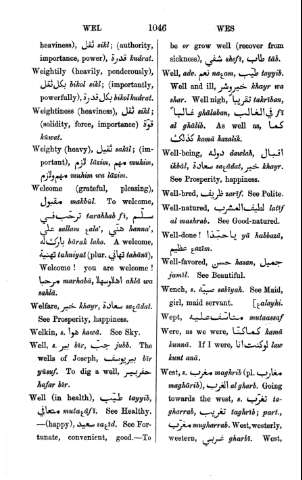 WEL 1046 WES
heaviness), ثقل sikl; (authority,
importance, power), قدرة kudrat.
Weightily (heavily, ponderously),
بكل ثقل bikol sikl; (importantly,
powerfully), بكل قدرة bikol kudrat.
Weightiness (heaviness), ثقل sikl;
(solidity, force, importance) قوة
kūwat.
Weighty (heavy), ثقيل sakīl; (im-
portant), لازم lāzim, مهم muhim,
مهم ولازم muhim wa lāzim.
Welcome (grateful, pleasing),
مقبول makbūl. To welcome,
ترحب في tarahhab fī, سلم
علي sallam ạala', هني hanna',
بارك له bārak laho. A welcome,
تهنية tahniyat (plur. تهاني tahānī).
Welcome! you are welcome!
مرحبا marhabā, اهلا وسهلا ahlā wa
sahlā.
Welfare, خير khayr, سعادة saạādat.
See Prosperity, happiness.
Welkin, s. هوا hawā. See Sky.
Well, s. بير bīr, جب jubb. The
wells of Joseph, بير يوسف bīr
yūsuf. To dig a well, حفر بير
hafar bīr.
Well (in health), طيب tayyib,
متعافي mutaạāfī. See Healthy.
—(happy), سعيد saạīd. See For-
tunate, convenient, good.—To
be or grow well (recover from
sickness), شفي shofī, طاب tāb.
Well, adv. نعم naạam, طيب tayyib.
Well and ill, خير وشر khayr wa
shar. Well nigh, تقريبا takrīban,
غالبا ghālaban, في الغالب fī
al ghālib. As well as, كما
كذلك kamā kazalik.
Well-being, دولة dawlah, اقبال
ikbāl, سعادة saạādat, خير khayr.
See Prosperity, happiness.
Well-bred, ظريف zarīf. See Polite.
Well-natured, لطيف المشرب latīf
al mashrab. See Good-natured.
Well-done! يا حبذا yā habbazā,
عظيم ạazīm.
Well-favored, حسن hasan, جميل
jamīl. See Beautiful.
Wench, s. صبية sabīyah. See Maid,
girl, maid servant. [ạalayhi.
Wept, متاسف عليه mutaassaf
Were, as we were, كما كنا kamā
kunnā. If I were, لو كنت انا law
kunt anā.
West, s. مغرب maghrib (pl. مغارب
maghārib), الغرب al gharb. Going
towards the west, s. تغرب ta-
gharrab, تغريب taghrīb; part.,
مغرب mugharrab. West, westerly,
western, غربي gharbī. West,